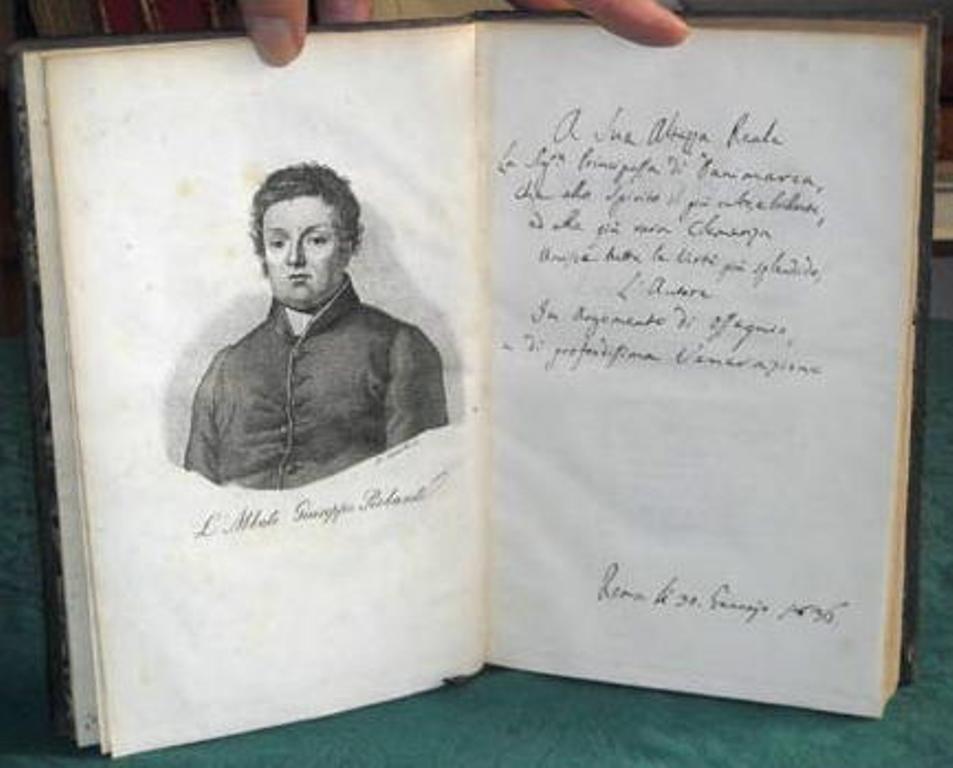 L'Abate Giuseppe
A Sua Altezza Reale
La Sig.ra Principessa di Danimarca,
che allo Spirito il più
ed alla più rara Clemenza
tutte le Virtù più splendide,
L'Autore
In Argomento di Ossequio,
e di profondissima Venerazione
Roma li 30. Gennajo 1836.